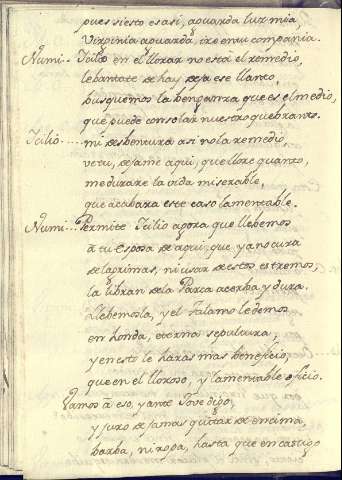 pues siesto es asi, aguarda luz mia,
Virginia aguarda, ire entu compañia.
Numi.. Icilio en el llorar no está el remedio,
lebantate de hay deja ese llanto,
busquemos la benganza que es el medio,
que puede consolar nuestro quebranto.
Icilio..... mi desbentura asi no la remedio,
vetu, dejame aqui, que llore quanto,
me durare la vida miserable,
que acabara este caso lamentable.
Numi... Permite Icilio agora que llebemos
a tu esposa de aqui que ya no cura
de lagrimas, ni usar de estos estremos,
la libran de la Parca acerba y dura.
Llebemosla, y el Talamo le demos
en honda, eterna sepultura,
y en esto le harás mas beneficio,
que en el lloroso, y lamentable oficio.
Vamos á eso, y ante Jove digo,
y juro de jamas quitar de encima,
barba, ni ropa, hasta que en castigo